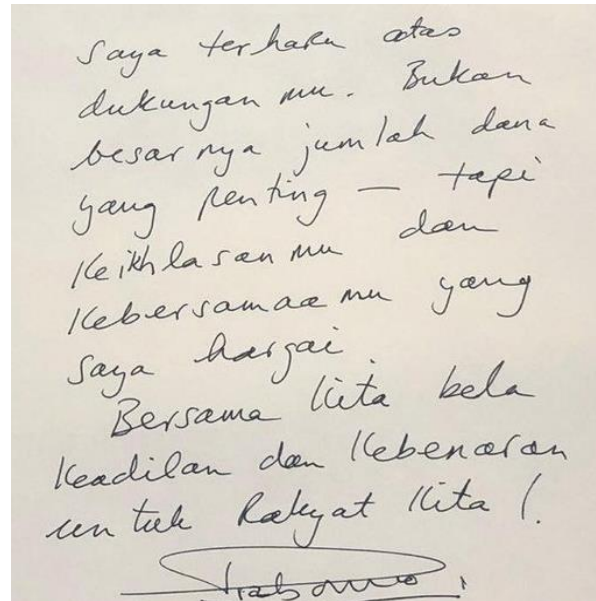 saya terharu atas
dukungan mu. Bukan
besar nya jumlah dana
yang penting — tapi
Keikhlasan mu dan
Kebersamaa mu yang
saya hargai.
Bersama kita bela
Keadilan dan Kebenaran
untuk Rakyat Kita !.
Prabowo.